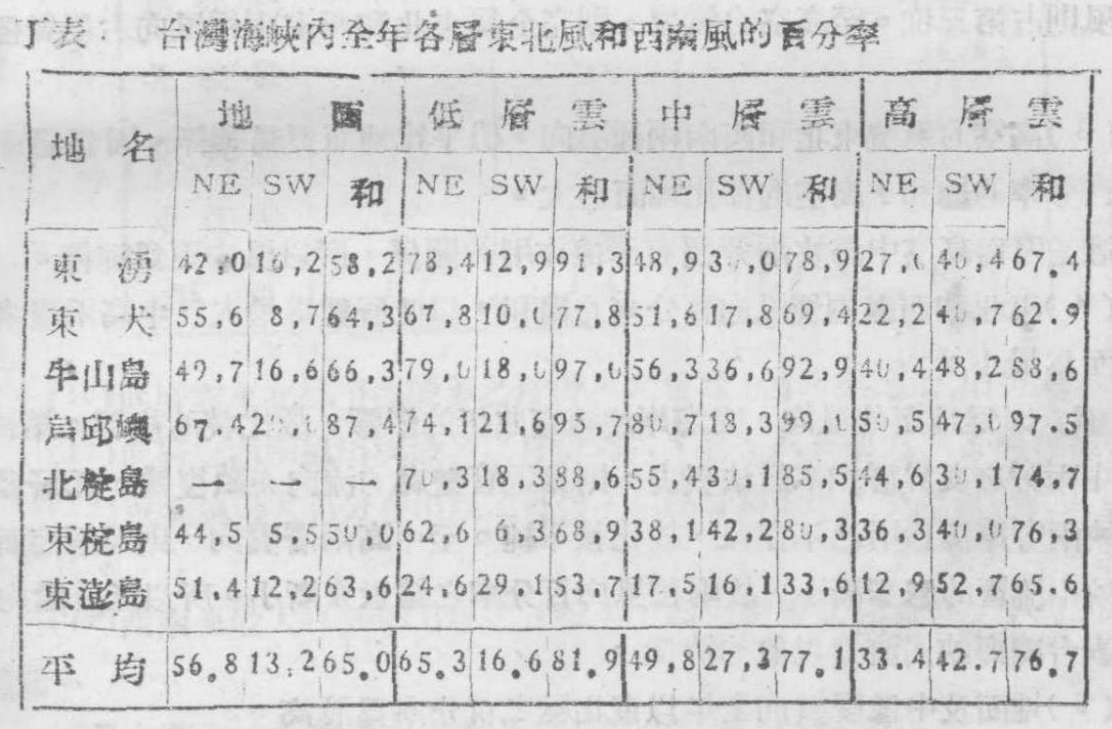 丁表　台灣海峽內全年各層東北風和西南風的百分率
地名 地面 低層雲 中層雲 高層雲
NE SW 和 NE SW 和 NE SW 和 NE SW 和
東湧 42,0 16,2 58,2 78,4 12,9 91,3 48,9 30,0 78,9 27,0 40,4 67.4
東犬 55,6 8,7 64,3 67,8 10,0 77,8 51,6 17,8 69,4 22,2 40,7 62.9
牛山島 49,7 16,6 66,3 79,0 18,0 97,0 56,3 36,6 92,9 40,4 48,2 88,6
烏邱嶼 67.4 20,0 87,4 74,1 21,6 95,7 80,7 18,3 99,0 50,5 47,0 97.5
北椗島 — — — 70,3 18,3 88,6 55,4 30,1 85,5 44,6 30,1 74,7
東椗島 44,5 5,5 50,0 62,6 6,3 68,9 38,1 42,2 80,3 36,3 40,0 76.3
東澎島 51,4 12,2 63,6 24,6 29,1 53,7 17,5 16,1 33,6 12,9 52,7 65.6
平均 56.8 13.2 65.0 65.3 16.6 81.9 49,8 27,3 77.1 33.4 42.7 76.7